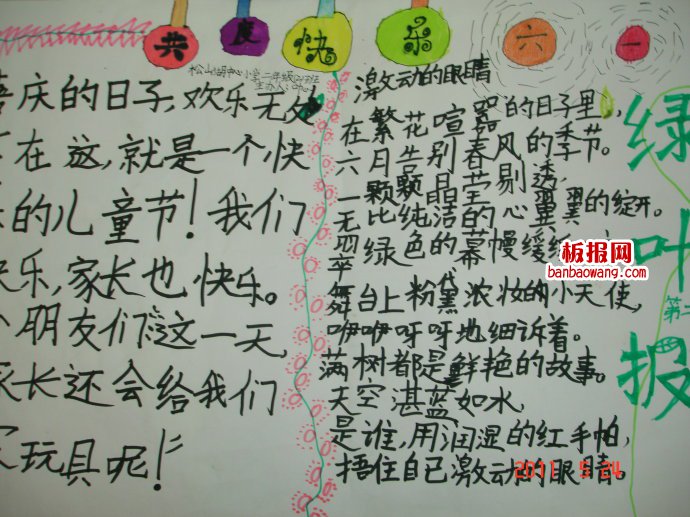 共度快乐六一
松山湖中心小学二年级
主办人:
庆的日子,欢乐无处
在这,就是一个快
的儿童节!我们
快乐,家长也快乐。
朋友们这一天,
家长还会给我们
玩具呢!
激动的眼睛
在繁花喧嚣的日子里,
六月告别春风的季节。
一颗颗晶莹剔透,
无比纯洁的心翼翼的绽开。
绿色的幕幔缓
舞台上粉黛浓妆的小天使,
咿咿呀呀地细诉着。
满树都是鲜艳的故事。
天空湛蓝如水,
是谁,用润湿的红手帕,
捂住自己激动的眼睛。
绿叶报
第二
板报网
banbaowang.com
2011 5 24